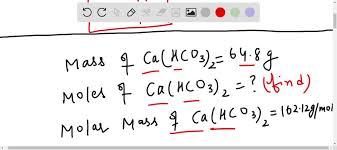 Mass of Ca(HCO₃)₂ = 64.8 g
Moles of Ca(HCO₃)₂ = ? (find)
Molar Mass of Ca(HCO₃)₂ = 162.12 g/mol